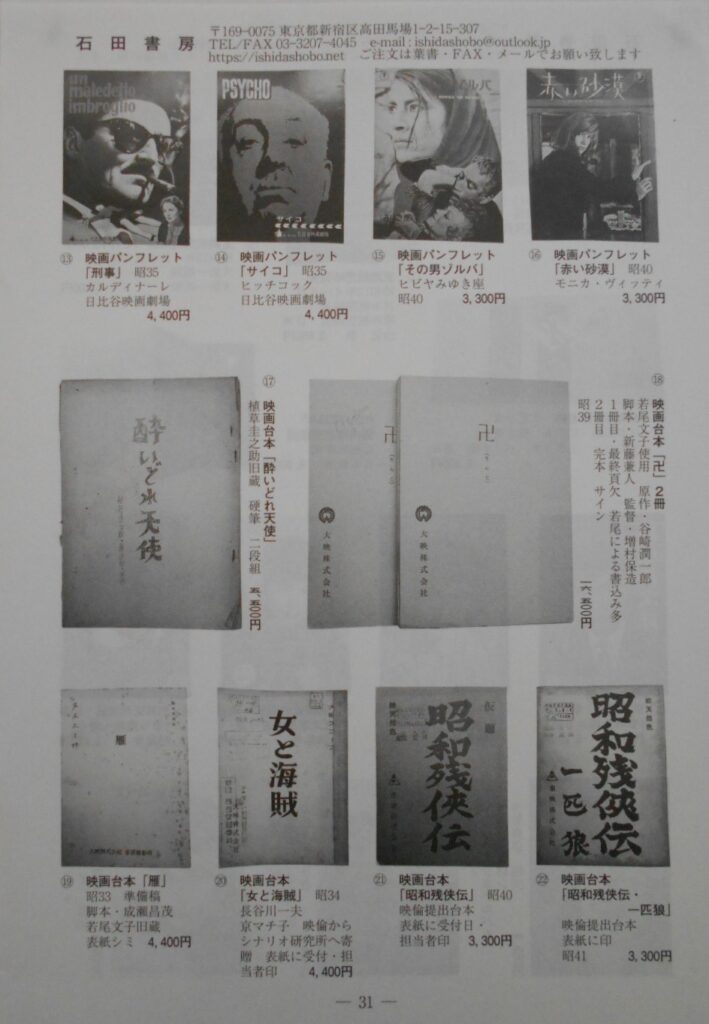 石田書房
〒169-0075 東京都新宿区高田馬場1-2-15-307
TEL/FAX 03-3207-4045　e-mail : ishidashobo@outlook.jp
https://ishidashobo.net　ご注文は葉書・FAX・メールでお願い致します
un
maledetto
imbroglio
PSYCHO
サイコ
赤い砂漠
⑬ 映画パンフレット
「刑事」 昭35
カルディナーレ
日比谷映画劇場
4,400円
⑭ 映画パンフレット
「サイコ」 昭35
ヒッチコック
日比谷映画劇場
4,400円
⑮ 映画パンフレット
「その男ゾルバ」
ヒビヤみゆき座
昭40　3,300円
⑯ 映画パンフレット
「赤い砂漠」 昭40
モニカ・ヴィッティ
3,300円
酔いどれ天使
⑰
映画台本「酔いどれ天使」
植草圭之助旧蔵　硬筆　二段組　五、五〇〇円
卍
大映株式会社
卍
大映株式会社
⑱
映画台本「卍」2冊
若尾文子使用　原作・谷崎潤一郎
脚本・新藤兼人　監督・増村保造
1冊目・最終頁欠　若尾による書込み多
2冊目　完本　サイン
昭39　一六、五〇〇円
雁
女と海賊
仮題
昭和残侠伝
昭和残侠伝
一匹狼
東映株式会社
⑲ 映画台本「雁」
昭33　準備稿
脚本・成瀬昌茂
若尾文子旧蔵
表紙シミ　4,400円
⑳ 映画台本
「女と海賊」 昭34
長谷川一夫
京マチ子　映倫から
シナリオ研究所へ寄
贈　表紙に受付・担
当者印　4,400円
㉑ 映画台本
「昭和残侠伝」 昭40
映倫提出台本
表紙に受付日・
担当者印　3,300円
㉒ 映画台本
「昭和残侠伝・
一匹狼」
映倫提出台本
表紙に印
昭41　3,300円
― 31 ―